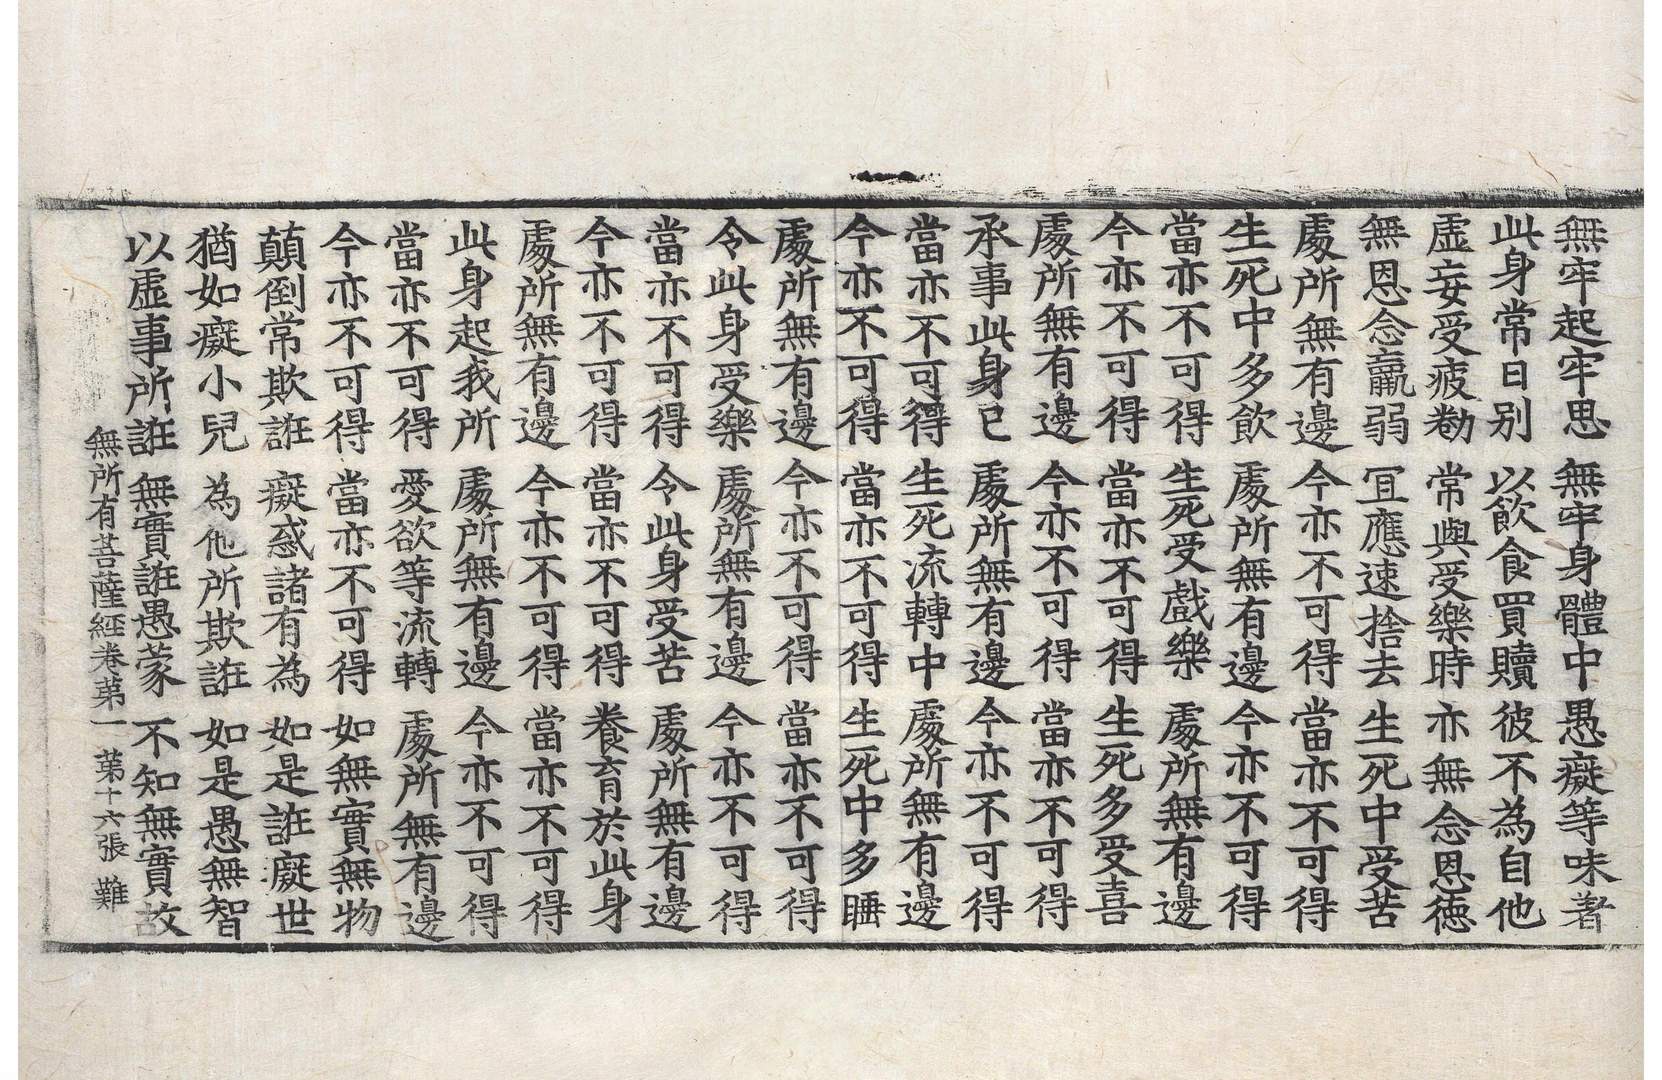 無牢起牢思 無牢身體中 愚癡等味著
此身常日別 以飲食買贖 彼不為自他
虛妄受疲勌 常與受樂時 亦無念恩徳
無恩念羸弱 冝應速捨去 生死中受苦
處所無有邊 今亦不可得 當亦不可得
生死中多飲 處所無有邊 今亦不可得
當亦不可得 生死受戲樂 處所無有邊
今亦不可得 當亦不可得 生死多受喜
處所無有邊 今亦不可得 當亦不可得
承事此身已 處所無有邊 今亦不可得
當亦不可得 生死流轉中 處所無有邊
今亦不可得 當亦不可得 生死中多睡
處所無有邊 今亦不可得 當亦不可得
令此身受樂 處所無有邊 今亦不可得
當亦不可得 令此身受苦 處所無有邊
今亦不可得 當亦不可得 養育於此身
處所無有邊 今亦不可得 當亦不可得
此身起我所 處所無有邊 今亦不可得
當亦不可得 愛欲等流轉 處所無有邊
今亦不可得 當亦不可得 如無實無物
顛倒常欺誑 癡惑諸有為 如是誑癡世
猶如癡小兒 為他所欺誑 如是愚無智
以虛事所誑 無實誑愚蒙 不知無實故
無所有菩薩經卷苐一 苐十六張 難